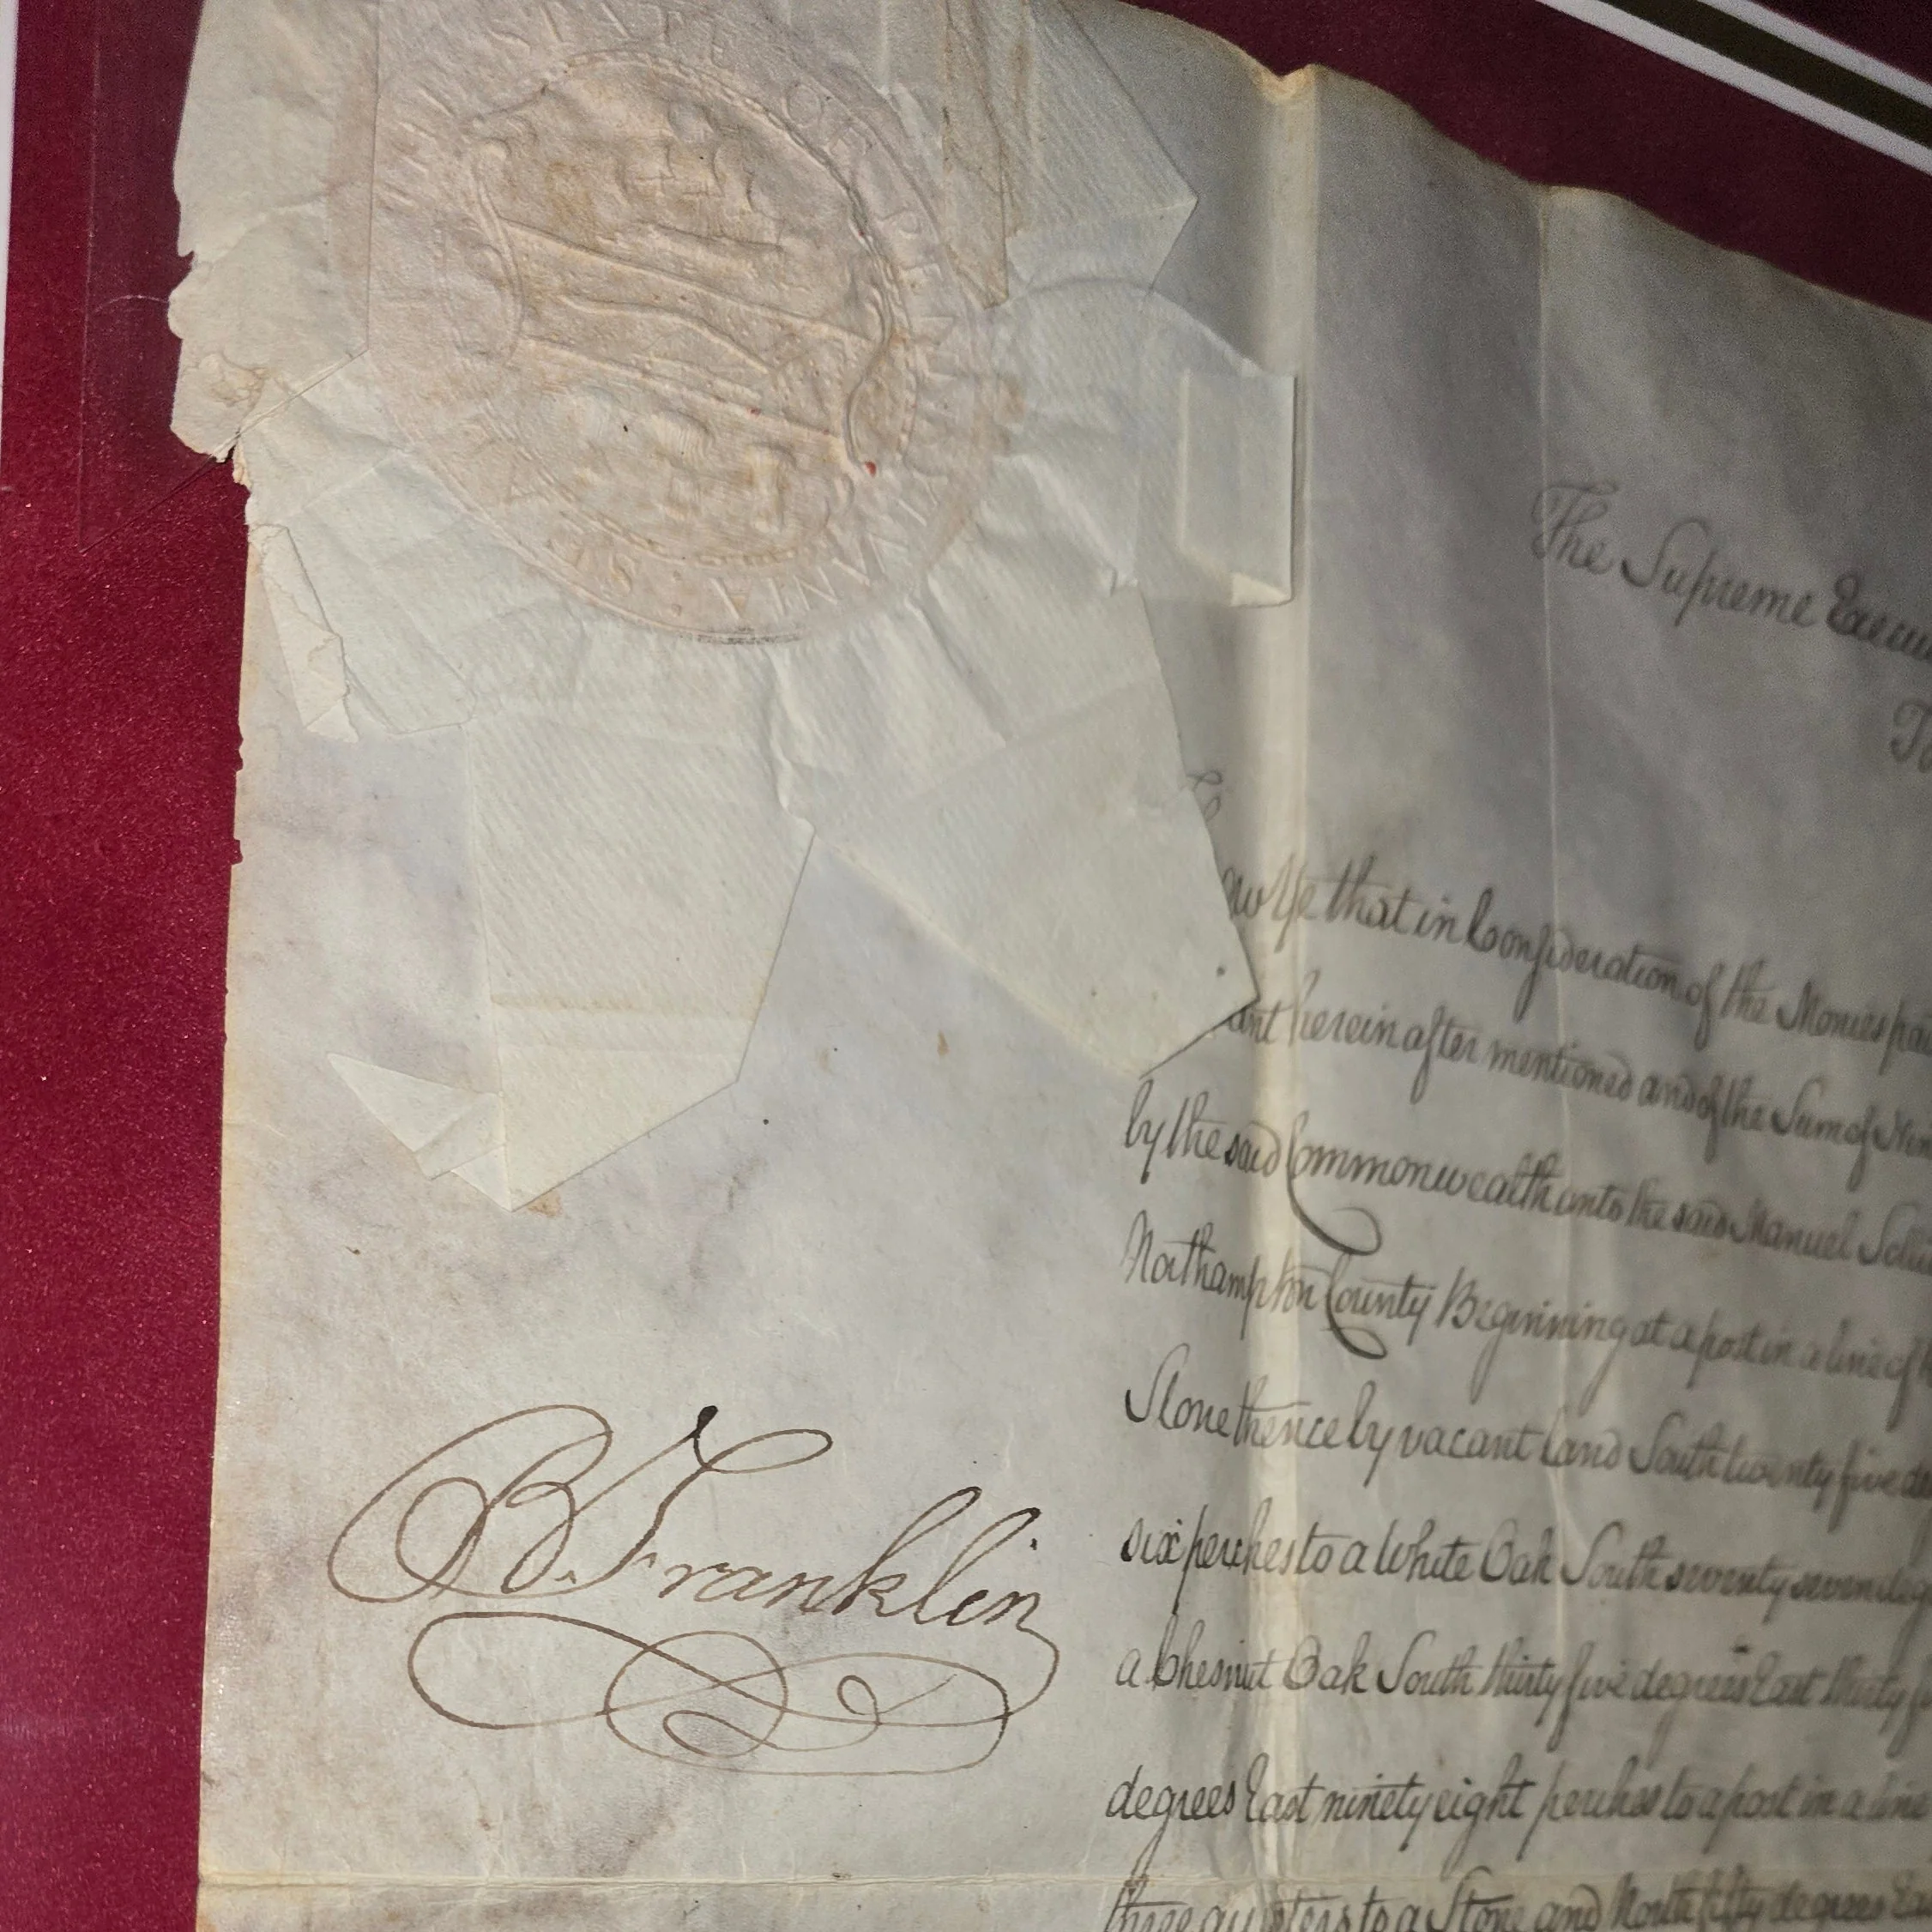 STATE OF PENNSYLVANIA
The Supreme
Know Ye that in Consideration of the Monies
herein after mentioned and of the Sum of
by the said Commonwealth unto the said Manuel
Northampton County Beginning at a post in a line of
Stone thence by vacant land South twenty five
six perches to a White Oak South seventy seven
a Chesnut Oak South thirty five degrees East thirty
degrees East ninety eight perches to a post in a line
three quarters to a Stone and North fifty degrees
B. Franklin